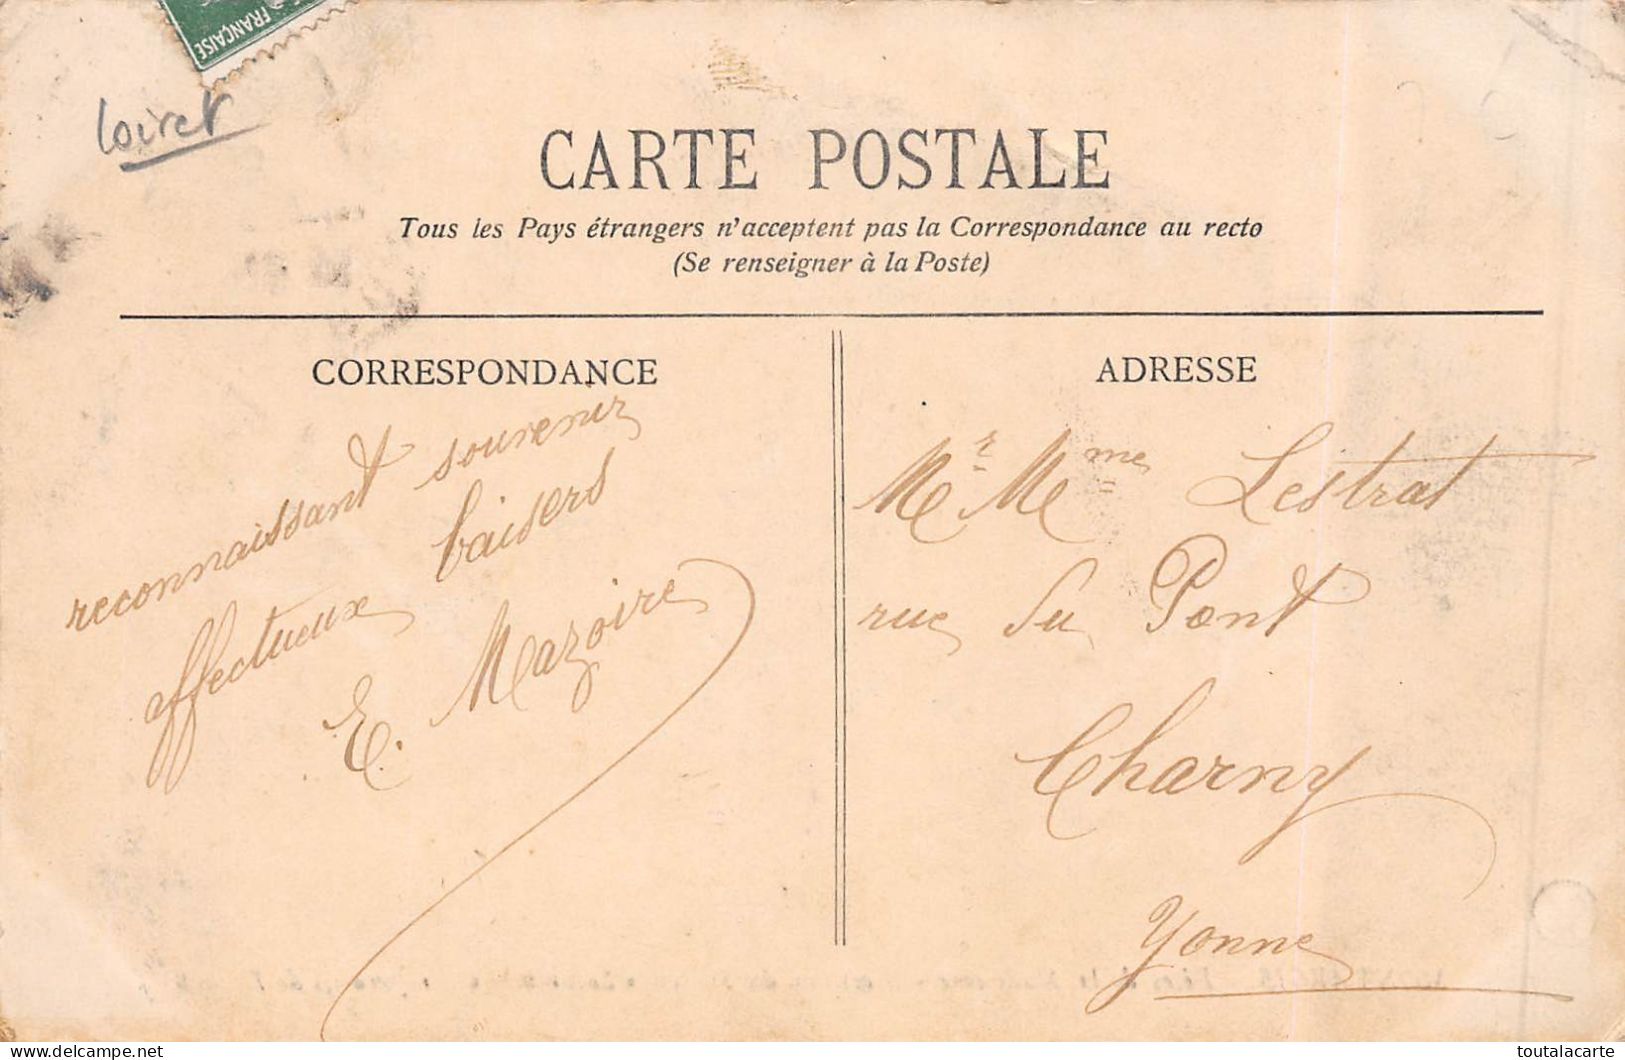 FRANÇAISE
Loiret
CARTE POSTALE
Tous les Pays étrangers n'acceptent pas la Correspondance au recto
(Se renseigner à la Poste)
CORRESPONDANCE
reconnaissant souvenir
affectueux baisers
E. Mazoire
ADRESSE
Mr Mme Lestrat
rue du Pont
Charny
Yonne
toutalacarte